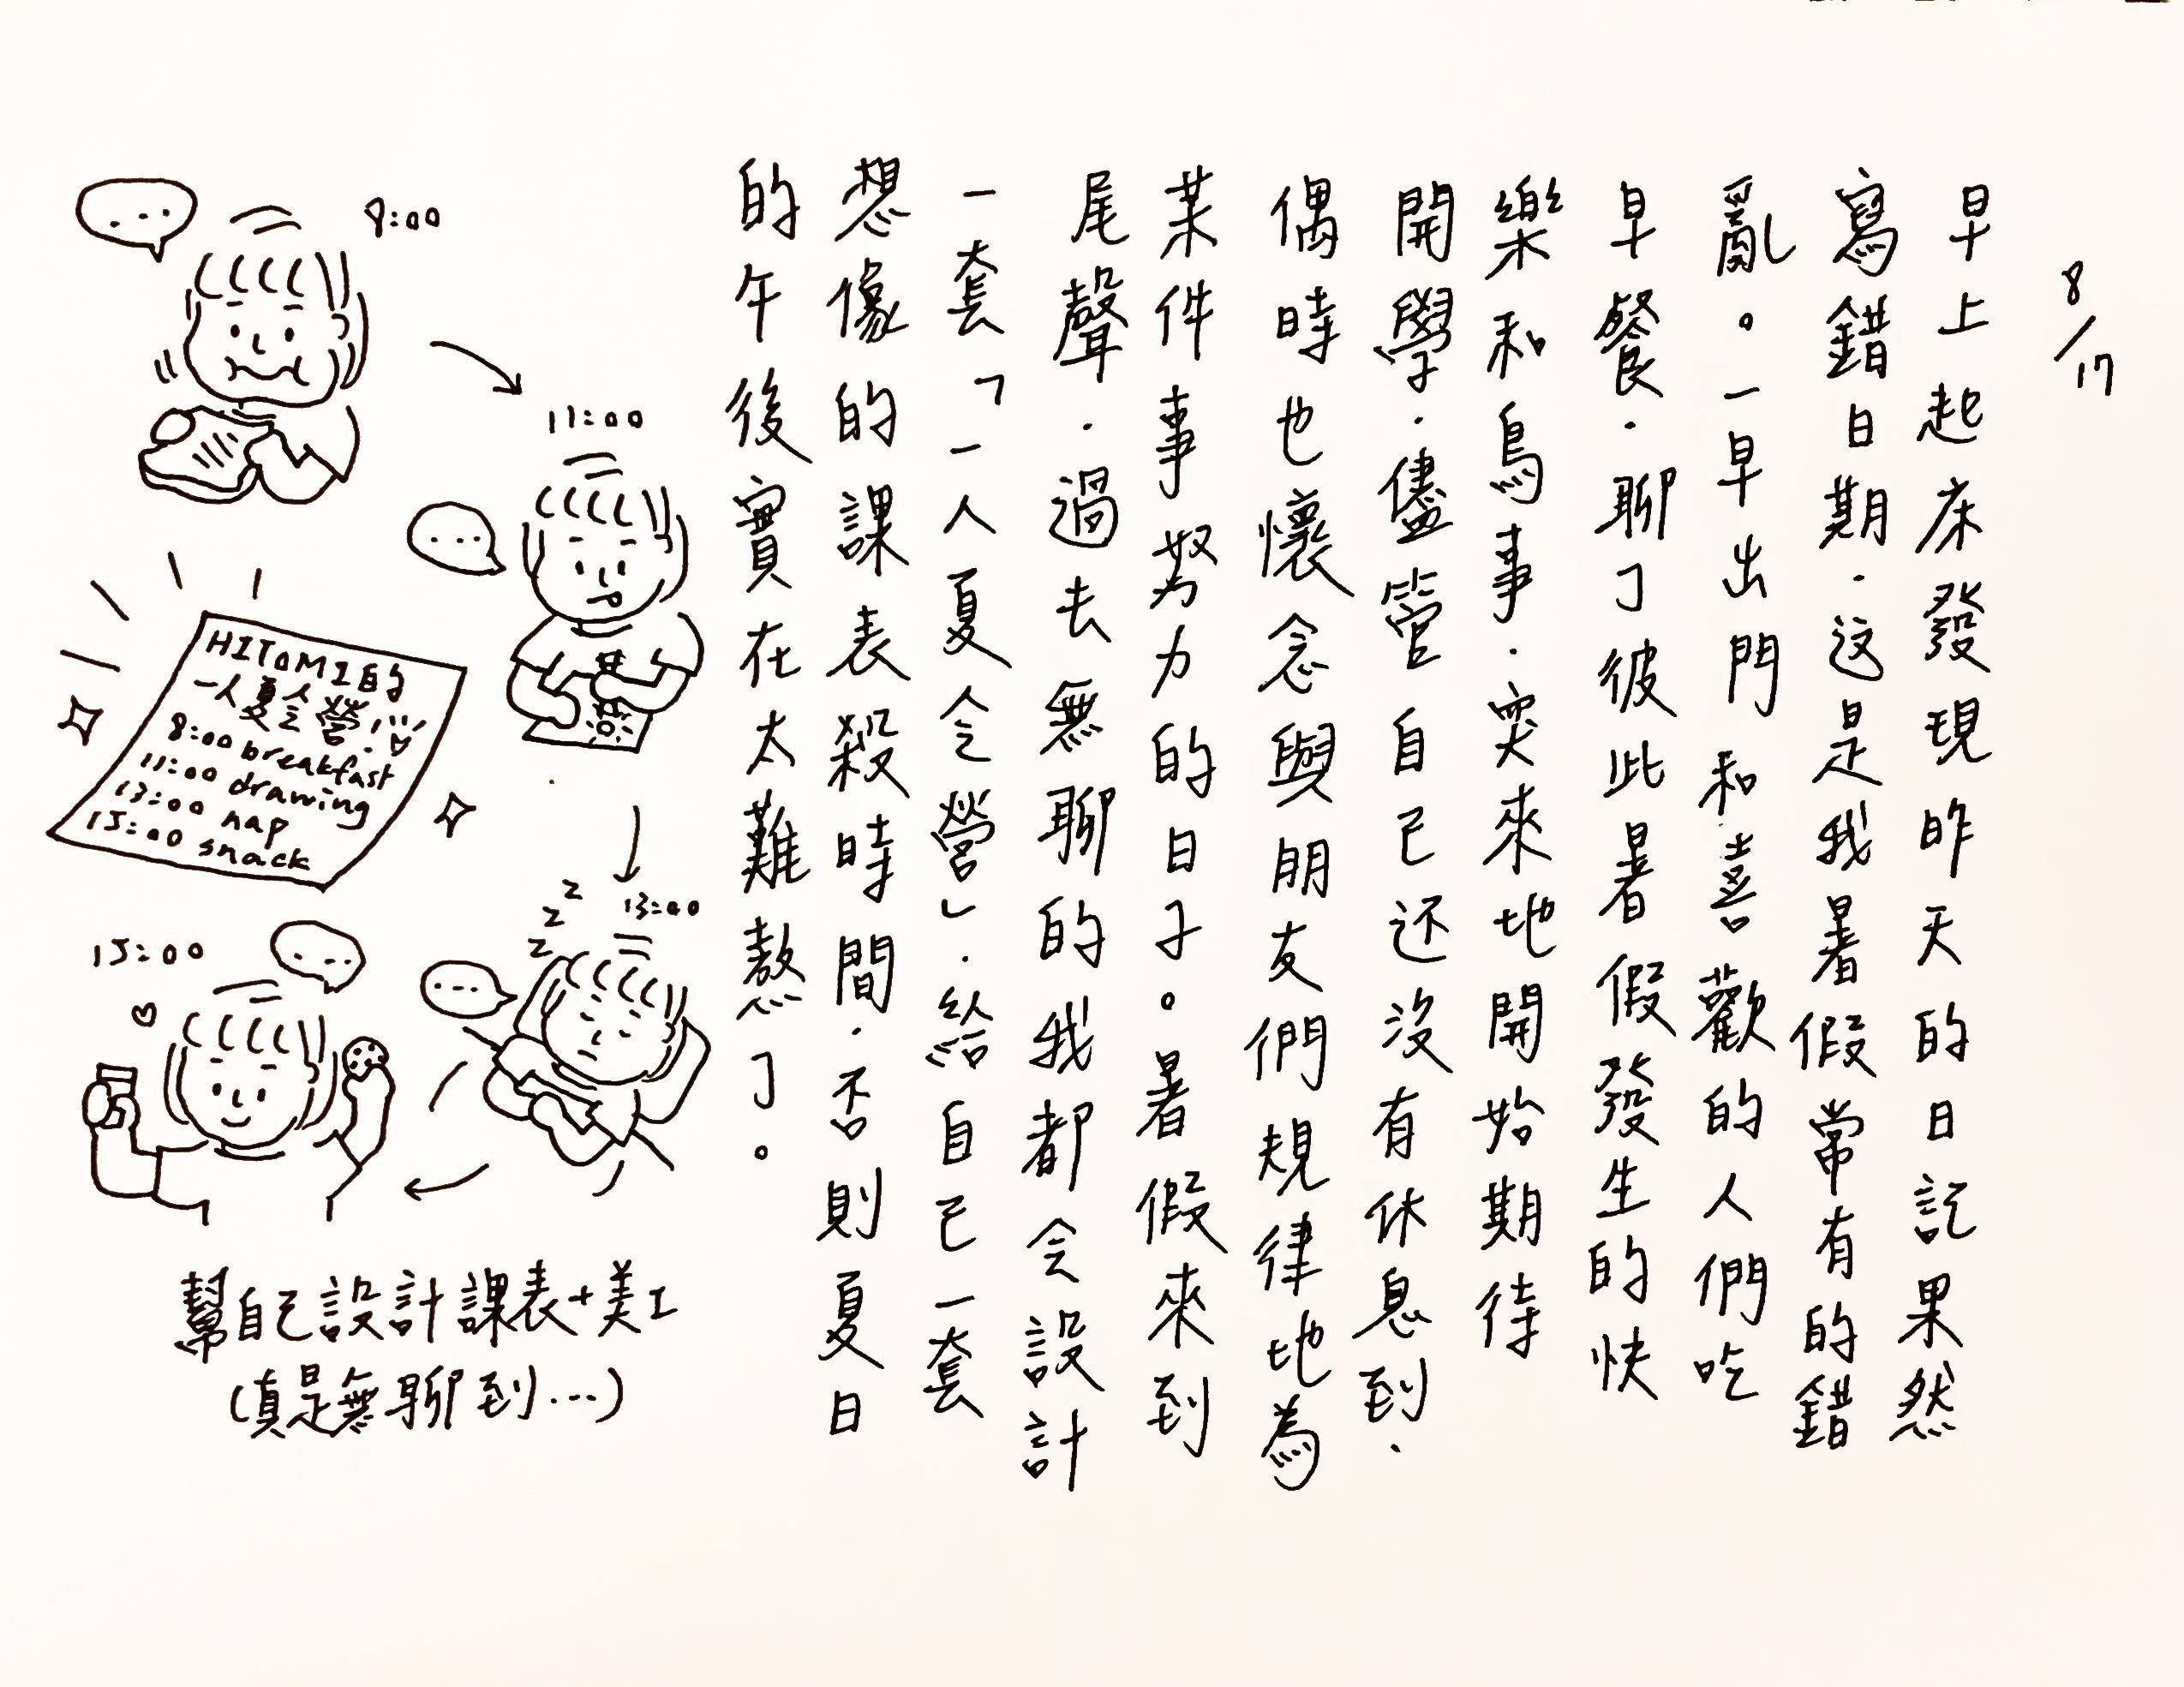 8/17
早上起床發現昨天的日記果然
寫錯日期.这是我暑假常有的錯
亂。一早出門和喜歡的人們吃
早餐.聊了彼此暑假發生的快
樂和鳥事.突來地開始期待
開學.儘管自己还沒有休息到.
偶時也懷念與朋友們規律地為
某件事努力的日子。暑假來到
尾聲.過去無聊的我都会設計
一套「一人夏令營」.給自己一套
想像的課表殺時間.否則夏日
的午後實在太難熬了。
8:00
...
11:00
...
HITOMI的
一人夏令營!
8:00 breakfast
11:00 drawing
13:00 nap
15:00 snack
z z z
13:00
...
15:00
...
幫自己設計課表+美工
(真是無聊到...)